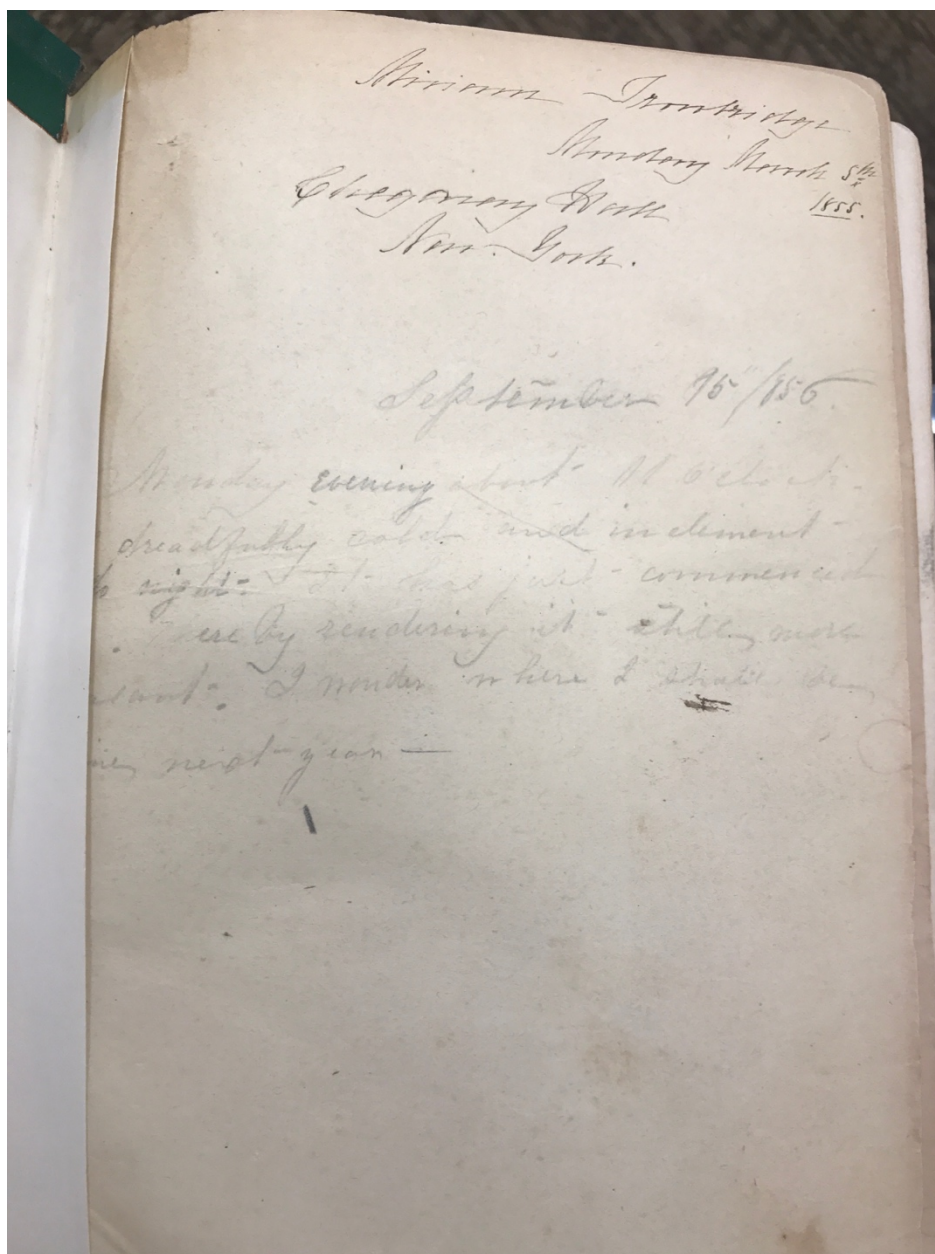 Miriam Trowbridge
Monday March 5th
1855.
Chegaray Hall
New-York.
September 15/856
Monday evening about o'clock
dreadfully cold and inclement
night. It has just commenced
ereby rendering it still more
sant. I wonder where I shall be
next year —